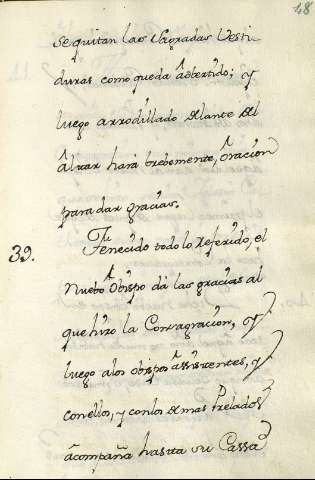 48
se quitan las Sagradas Vesti
duras como queda advertido; y
luego arrodillado delante del
Altar hará brebemente, oracion
para dar gracias.
39. Fenecido todo lo referido, el
Nuebo Obispo dá las gracias al
que hizo la Consagracion, y
luego alos obispos assistentes, y
conellos, y conlos demas Prelados
acompaña hasta su Cassa